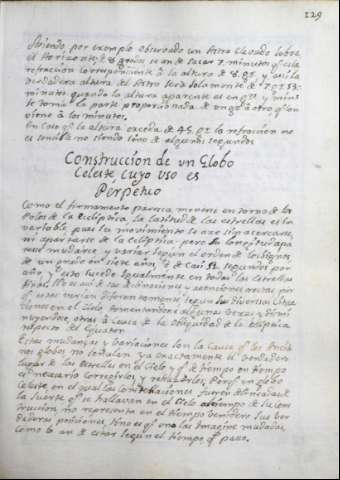 129
Siendo, por exemplo observado un Astro elevado sobre
el Horizonte de 8 grados se an de sacar 7 minutos q̃ es la
refraccion correspondiente à la altura de 8. gr, y asi la
verdadera altura del Astro será solamente de 7. gr 53
minutos quando la altura aparente es en gr. y minu
se toma la parte proporcionada de un gr à otro q̃ con
viene à los minutos.
En caso q̃ la altura exceda de 45. gr la refraccion no
es sensible no siendo sino de algunos segundos
Construccion de vn Globo
Celeste cuyo vso es
Perpetuo
Como el firmamento paresca moverse en torno de los
Polos de la Ecliptica la Latitud de las estrellas es in
variable pues su movimiento se hace sin acercarse,
ni apartarse de la ecliptica pero su longitud apa
rece mudarse y variar segun el orden de los signos
de un grado en siete años, i de casi 51. segundos por
año y esto sucede igualmente en todas las estrellas
de sus declinaciones y asenciones rectas por
q̃ estas varian diferentemente segun los diversos
en el Cielo, aumentandose algunas veces y dismi
nuyendose otras à causa de la obliquidad de la ecliptica
respecto del Equator
Estas mudanças y variaciones son la Causa q̃ los
globos no señalan ya exactamente el verdadero
lugar de las Estrellas en el Cielo y q̃ de tiempo en tiempo
es necesario corregirlos y retocarlos, Porq̃ un globo
Celeste en el qual las Constelaciones fueron delineadas de
la suerte q̃ se hallavan en el Cielo al tiempo de su cons
truccion no representa en el tiempo venidero sus ver
daderas posiciones, sino es q̃ uno las imagine mudadas
como lo an de estar segun el tiempo q̃ paso.